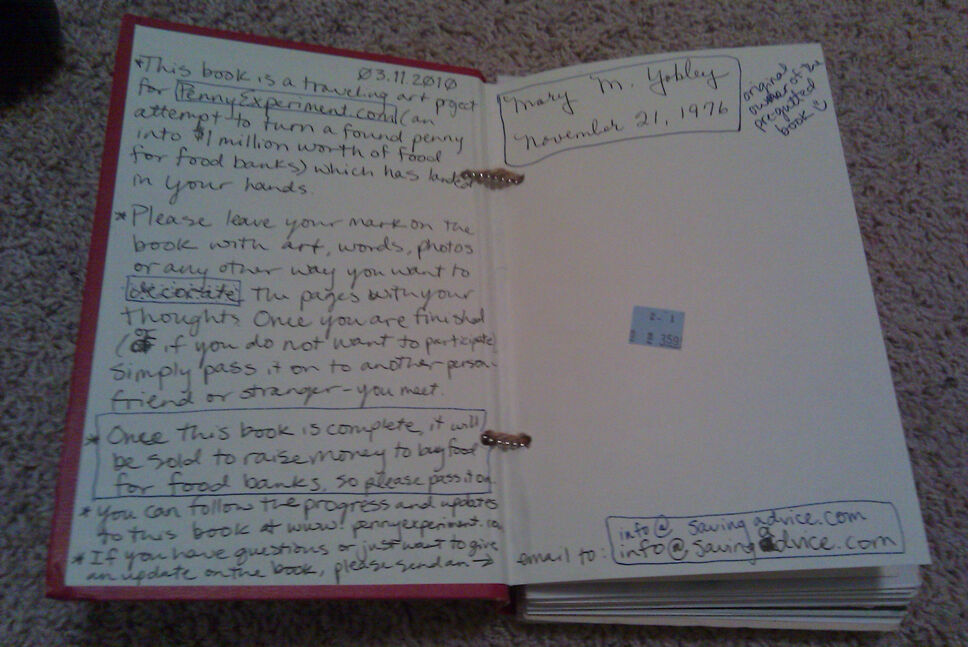 03.11.2010
*This book is a traveling art project
for PennyExperiment.com (an
attempt to turn a found penny
into $1 million worth of food
for food banks) which has landed
in your hands.
*Please leave your mark on the
book with art, words, photos
or any other way you want to
decorate the pages with your
thoughts. Once you are finished
(or if you do not want to participate)
simply pass it on to another person-
friend or stranger-you meet.
* Once this book is complete, it will
be sold to raise money to buy food
for food banks, so please pass it on.
* you can follow the progress and updates
to this book at www.pennyexperiment.co
* If you have questions or just want to give
an update on the book, please send an →
Mary M. Yobley
November 21, 1976
original
owner of the
pregutted
book
2. 1
359
info@ savingadvice.com
email to: info@savingadvice.com